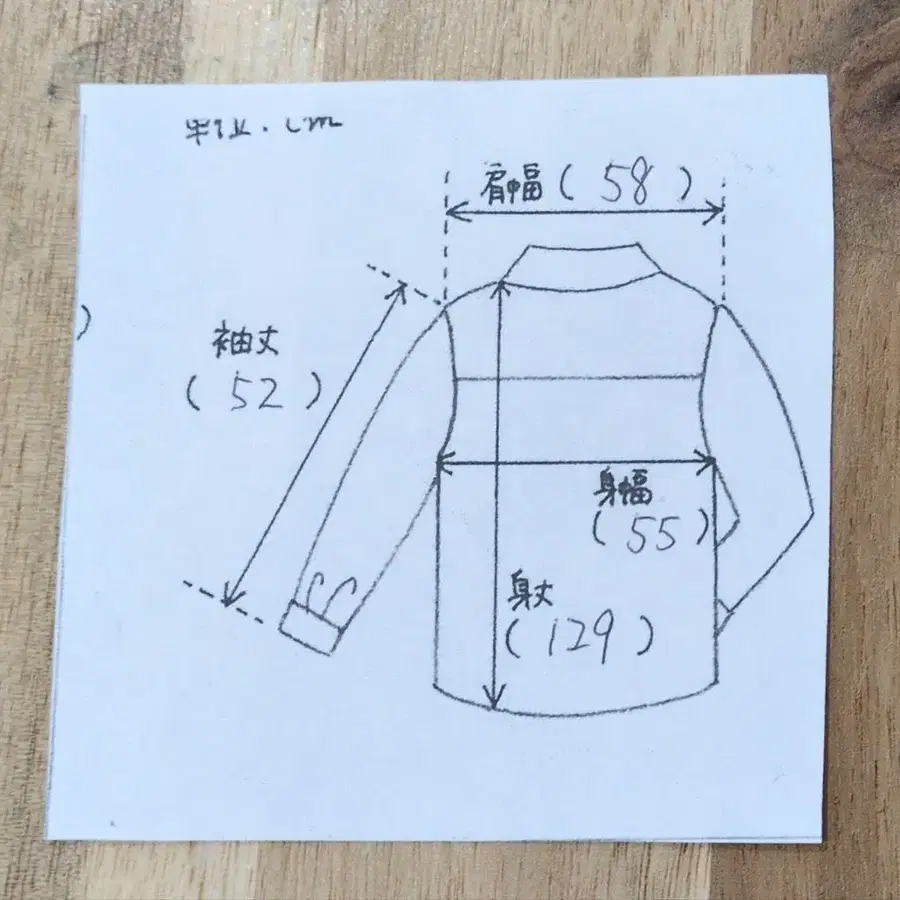 単位.cm
肩幅(58)
袖丈
(52)
身幅
(55)
身丈
(129)
)